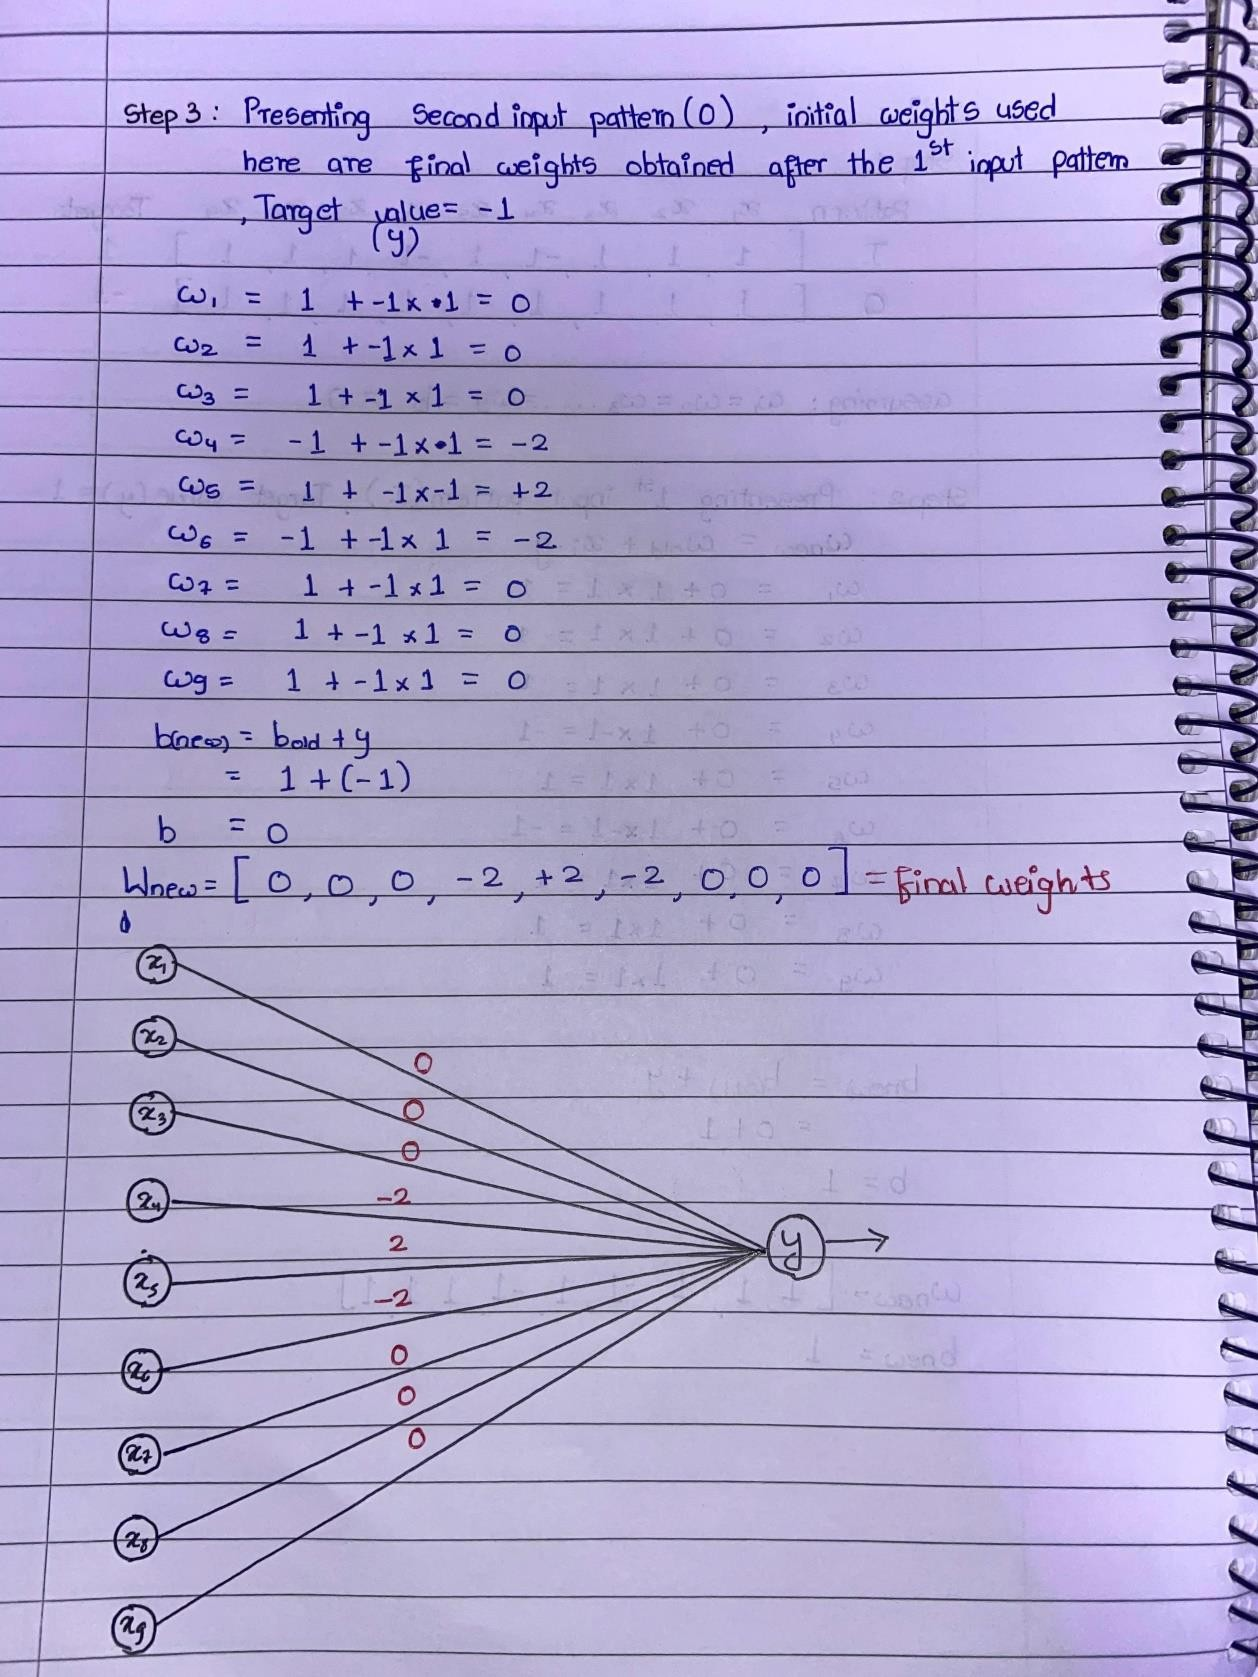 Step 3 : Presenting Second input pattern (O) , initial weights used
here are final weights obtained after the 1st input pattern
, Target value = -1
(y)
ω1 = 1 + -1 x 1 = 0
ω2 = 1 + -1 x 1 = 0
ω3 = 1 + -1 x 1 = 0
ω4 = -1 + -1 x 1 = -2
ω5 = 1 + -1 x -1 = +2
ω6 = -1 + -1 x 1 = -2
ω7 = 1 + -1 x 1 = 0
ω8 = 1 + -1 x 1 = 0
ω9 = 1 + -1 x 1 = 0
b(new) = bold + y
= 1 + (-1)
b = 0
Wnew = [ 0 , 0 , 0 , -2 , +2 , -2 , 0 , 0 , 0 ] = Final weights
x1
x2
0
x3
0
0
x4
-2
y
2
x5
-2
x6
0
0
x7
0
x8
x9